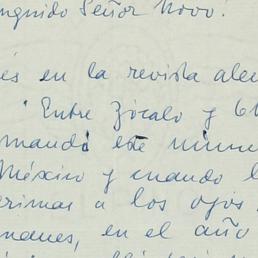 nguido Señor Novo!
és en la revista ale
"Entre Zócalo y
mandé este núme
México y cuando l
rimas a los ojos
manes, en el año